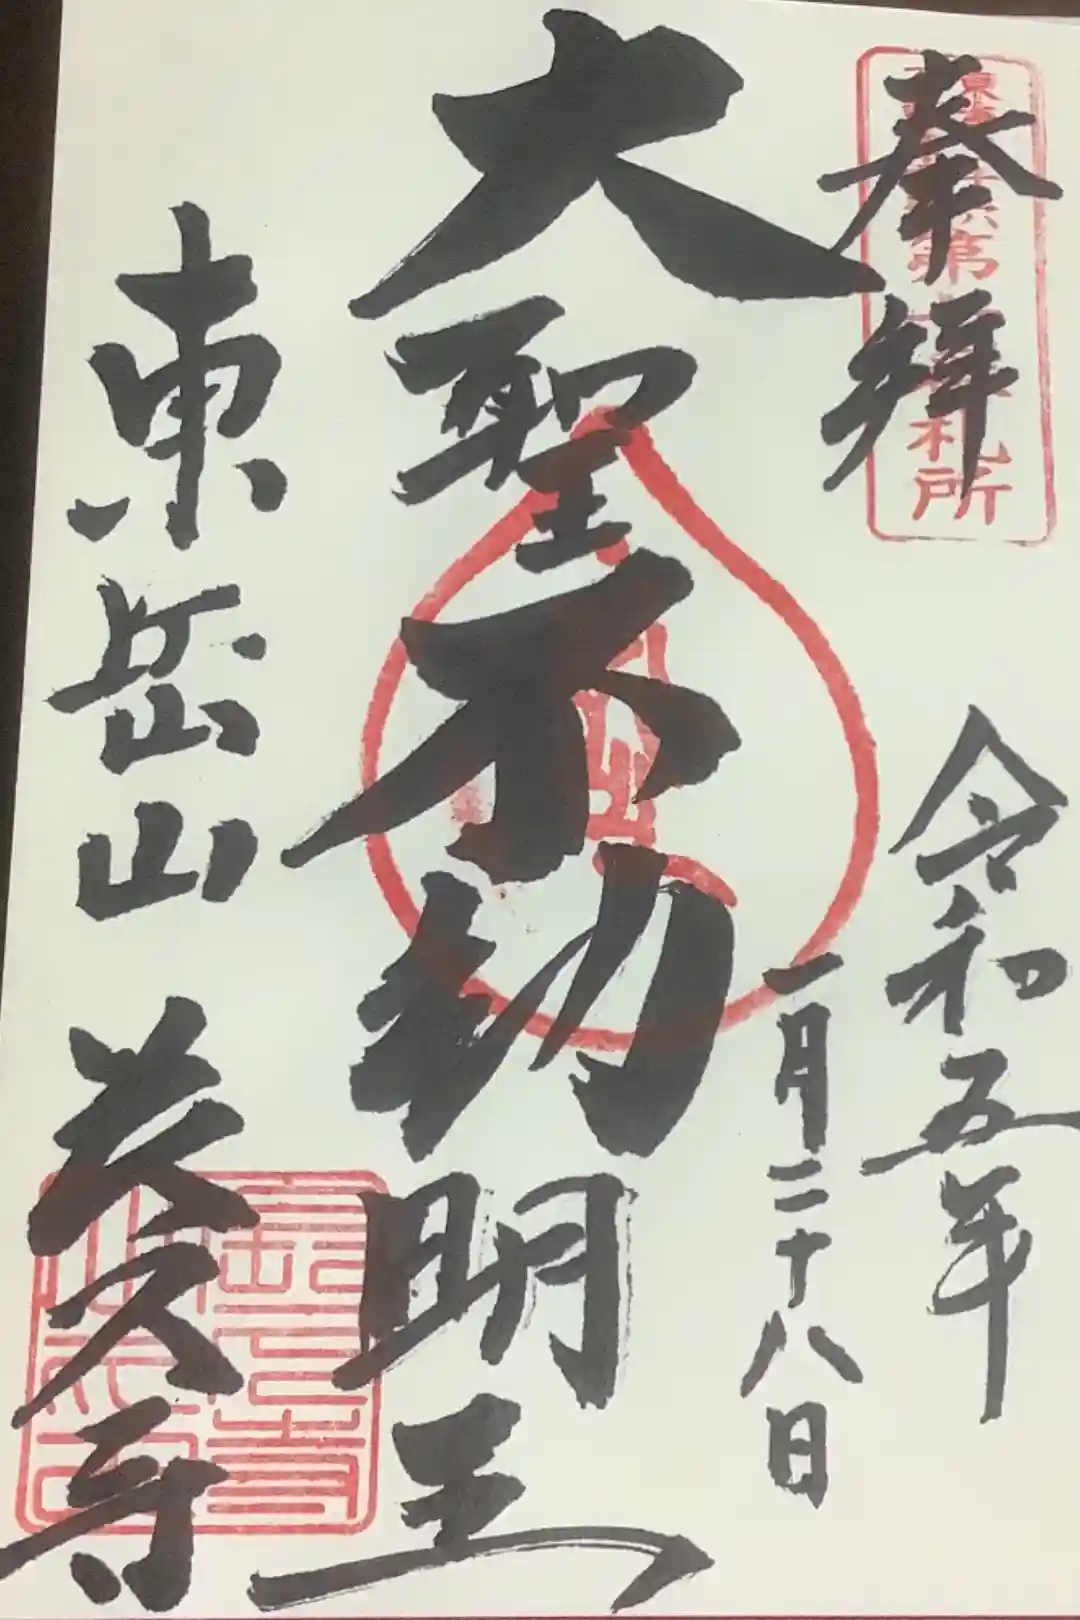 奉拝
令和五年
一月二十八日
大聖不動明王
東岳山
長久寺